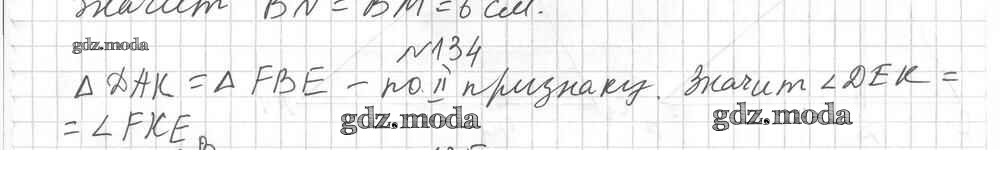 Значит BN = BM = 6 см.
gdz.moda
№134
△ DAK = △ FBE – по II признаку. Значит ∠DEK =
gdz.moda gdz.moda
= ∠FKE